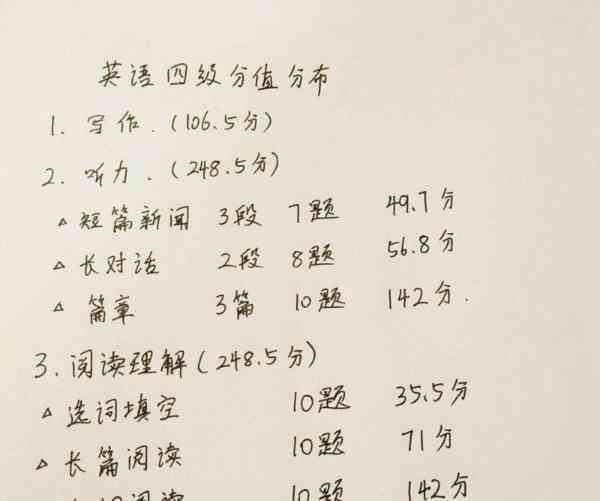 英语四级分值分布
1. 写作.(106.5分)
2. 听力.(248.5分)
△ 短篇新闻 3段 7题 49.7分
△ 长对话 2段 8题 56.8分
△ 篇章 3篇 10题 142分.
3. 阅读理解(248.5分)
△ 选词填空 10题 35.5分
△ 长篇阅读 10题 71分
阅读 10题 142分